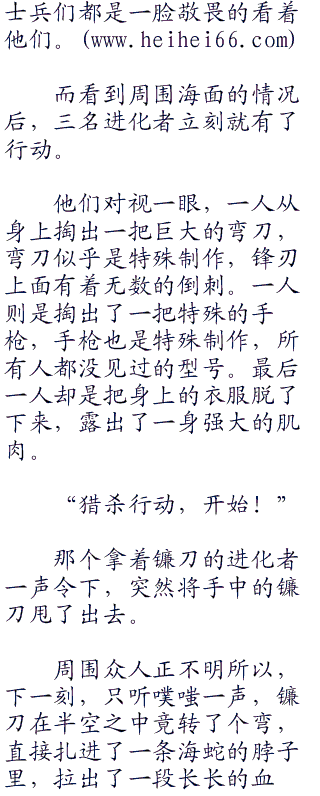 士兵们都是一脸敬畏的看着
他们。(www.heihei66.com)
而看到周围海面的情况
后，三名进化者立刻就有了
行动。
他们对视一眼，一人从
身上掏出一把巨大的弯刀，
弯刀似乎是特殊制作，锋刃
上面有着无数的倒刺。一人
则是掏出了一把特殊的手
枪，手枪也是特殊制作，所
有人都没见过的型号。最后
一人却是把身上的衣服脱了
下来，露出了一身强大的肌
肉。
“猎杀行动，开始！”
那个拿着镰刀的进化者
一声令下，突然将手中的镰
刀甩了出去。
周围众人正不明所以，
下一刻，只听噗嗤一声，镰
刀在半空之中竟转了个弯，
直接扎进了一条海蛇的脖子
里，拉出了一段长长的血